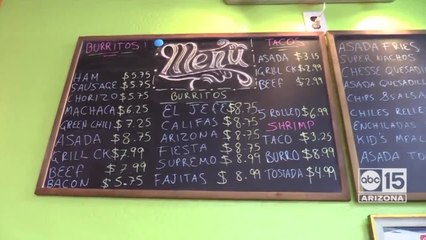 BURRITOS
HAM $5.75
SAUSAGE $5.75
CHORIZO $5.75
MACHACA $6.25
GREEN CHILI $7.25
ASADA $8.75
GRILL CK $7.99
BEEF $7.99
BACON $5.75
Menu
BURRITOS
EL JEFE $8.75
CALIFAS $8.75
ARIZONA $8.75
FIESTA $8.75
SUPREMO $8.99
FAJITAS $8.99
TACOS
ASADA $3.15
GRILL CK $2.99
BEEF $2.99
5 ROLLED $6.99
SHRIMP
TACO $3.25
BURRO $8.99
TOSTADA $4.99
ASADA FRIES
SUPER NACHOS
CHESSE QUESADIL
ASADA QUESADIL
CHIPS & SALSA
CHILES RELLE
ENCHILADAS
KID'S MEAL
ASADA TO
abc 15
ARIZONA